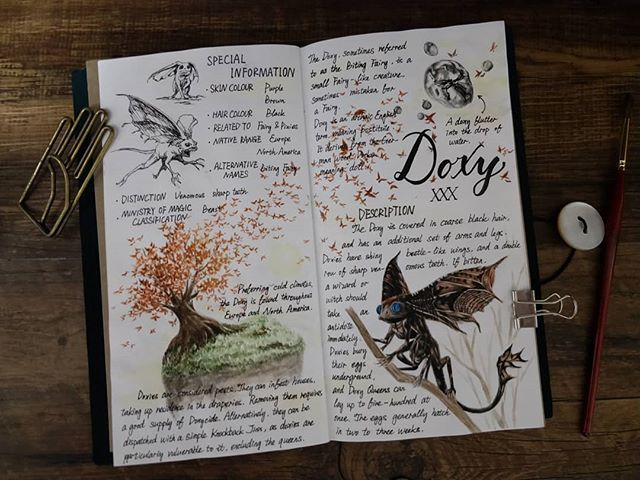 SPECIAL
INFORMATION
· SKIN COLOUR Purple
Brown
· HAIR COLOUR Black
· RELATED TO Fairy & Pixies
· NATIVE RANGE Europe
North America
· ALTERNATIVE Biting Fairy
NAMES
· DISTINCTION Venomous sharp teeth
· MINISTRY OF MAGIC Beast
CLASSIFICATION
Preferring cold climates,
the Doxy is found throughout
Europe and North America.
Doxies are considered pests. They can infest houses,
taking up residence in the draperies. Removing them requires
a good supply of Doxycide. Alternatively, they can be
dispatched with a simple Knockback Jinx, as doxies are
particularly vulnerable to it, excluding the queens.
The Doxy, sometimes referred
to as the Biting Fairy, is a
small Fairy-like creature,
sometimes mistaken for
a Fairy.
Doxy is an archaic English
term meaning prostitute.
It derives from the Ger-
man word
meaning doll.
A doxy flutter
into the drop of
water.
Doxy
XXX
DESCRIPTION
The Doxy is covered in coarse black hair,
and has an additional set of arms and legs.
Doxies have shiny beetle-like wings, and a double
row of sharp ven omous teeth. If bitten,
a wizard or
witch should
take
antidote
immdately.
Doxies bury
their eggs
underground,
and Doxy Queens can
lay up to five-hundred at
once. The eggs generally hatch
in two to three weeks.